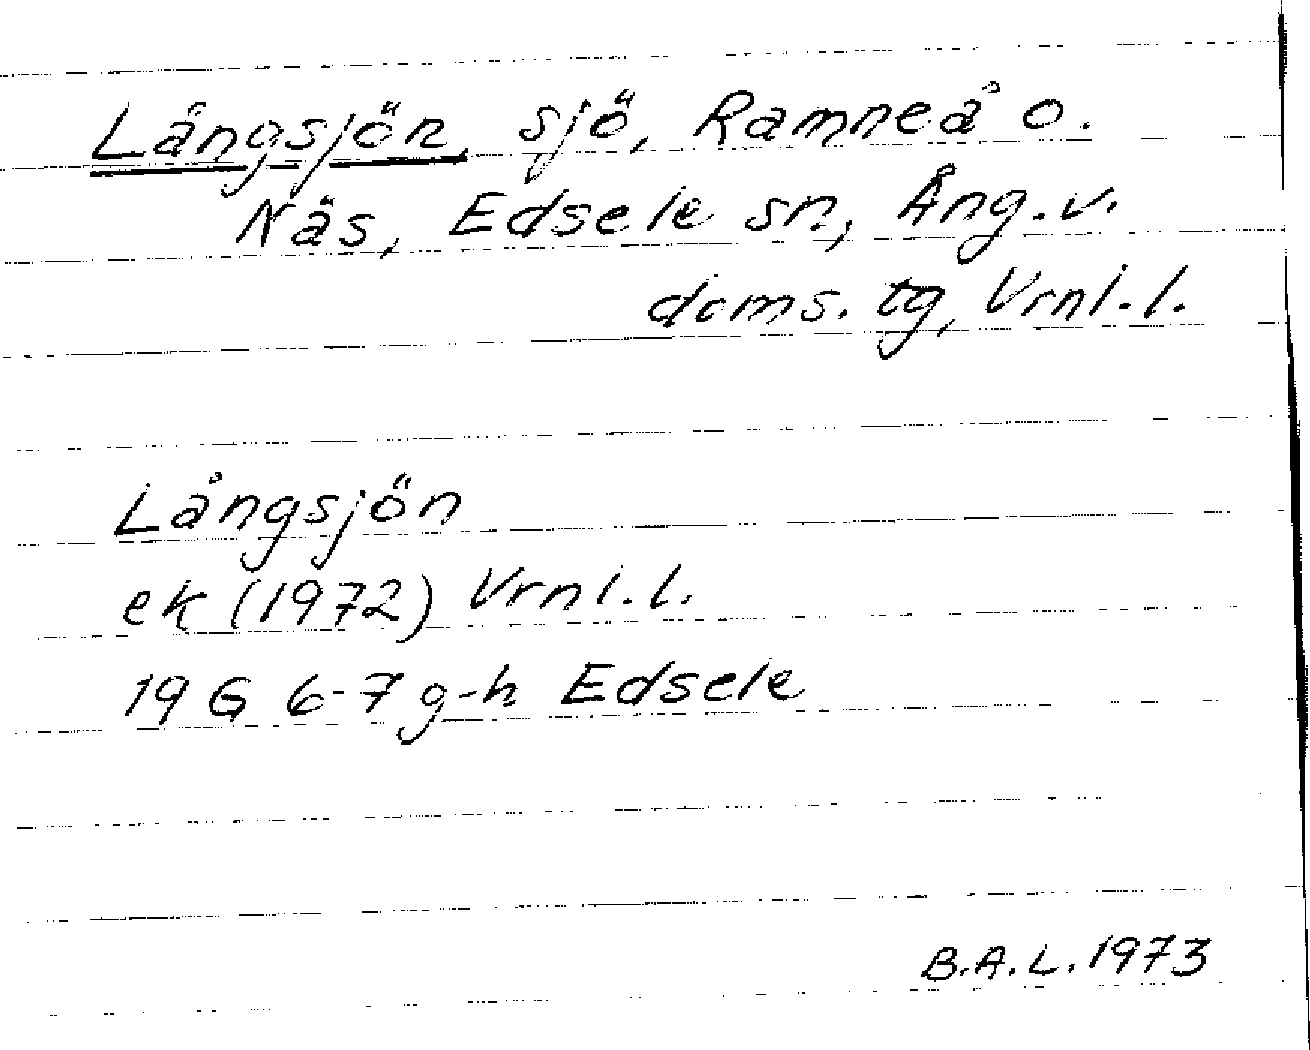 Långsjön, sjö, Ramneå o.
Näs, Edsele sn, Ång. v.
doms. tg, Vrnl. l.
Långsjön
ek (1972) Vrnl. l.
19 G 6-7 g-h Edsele
B.A.L. 1973